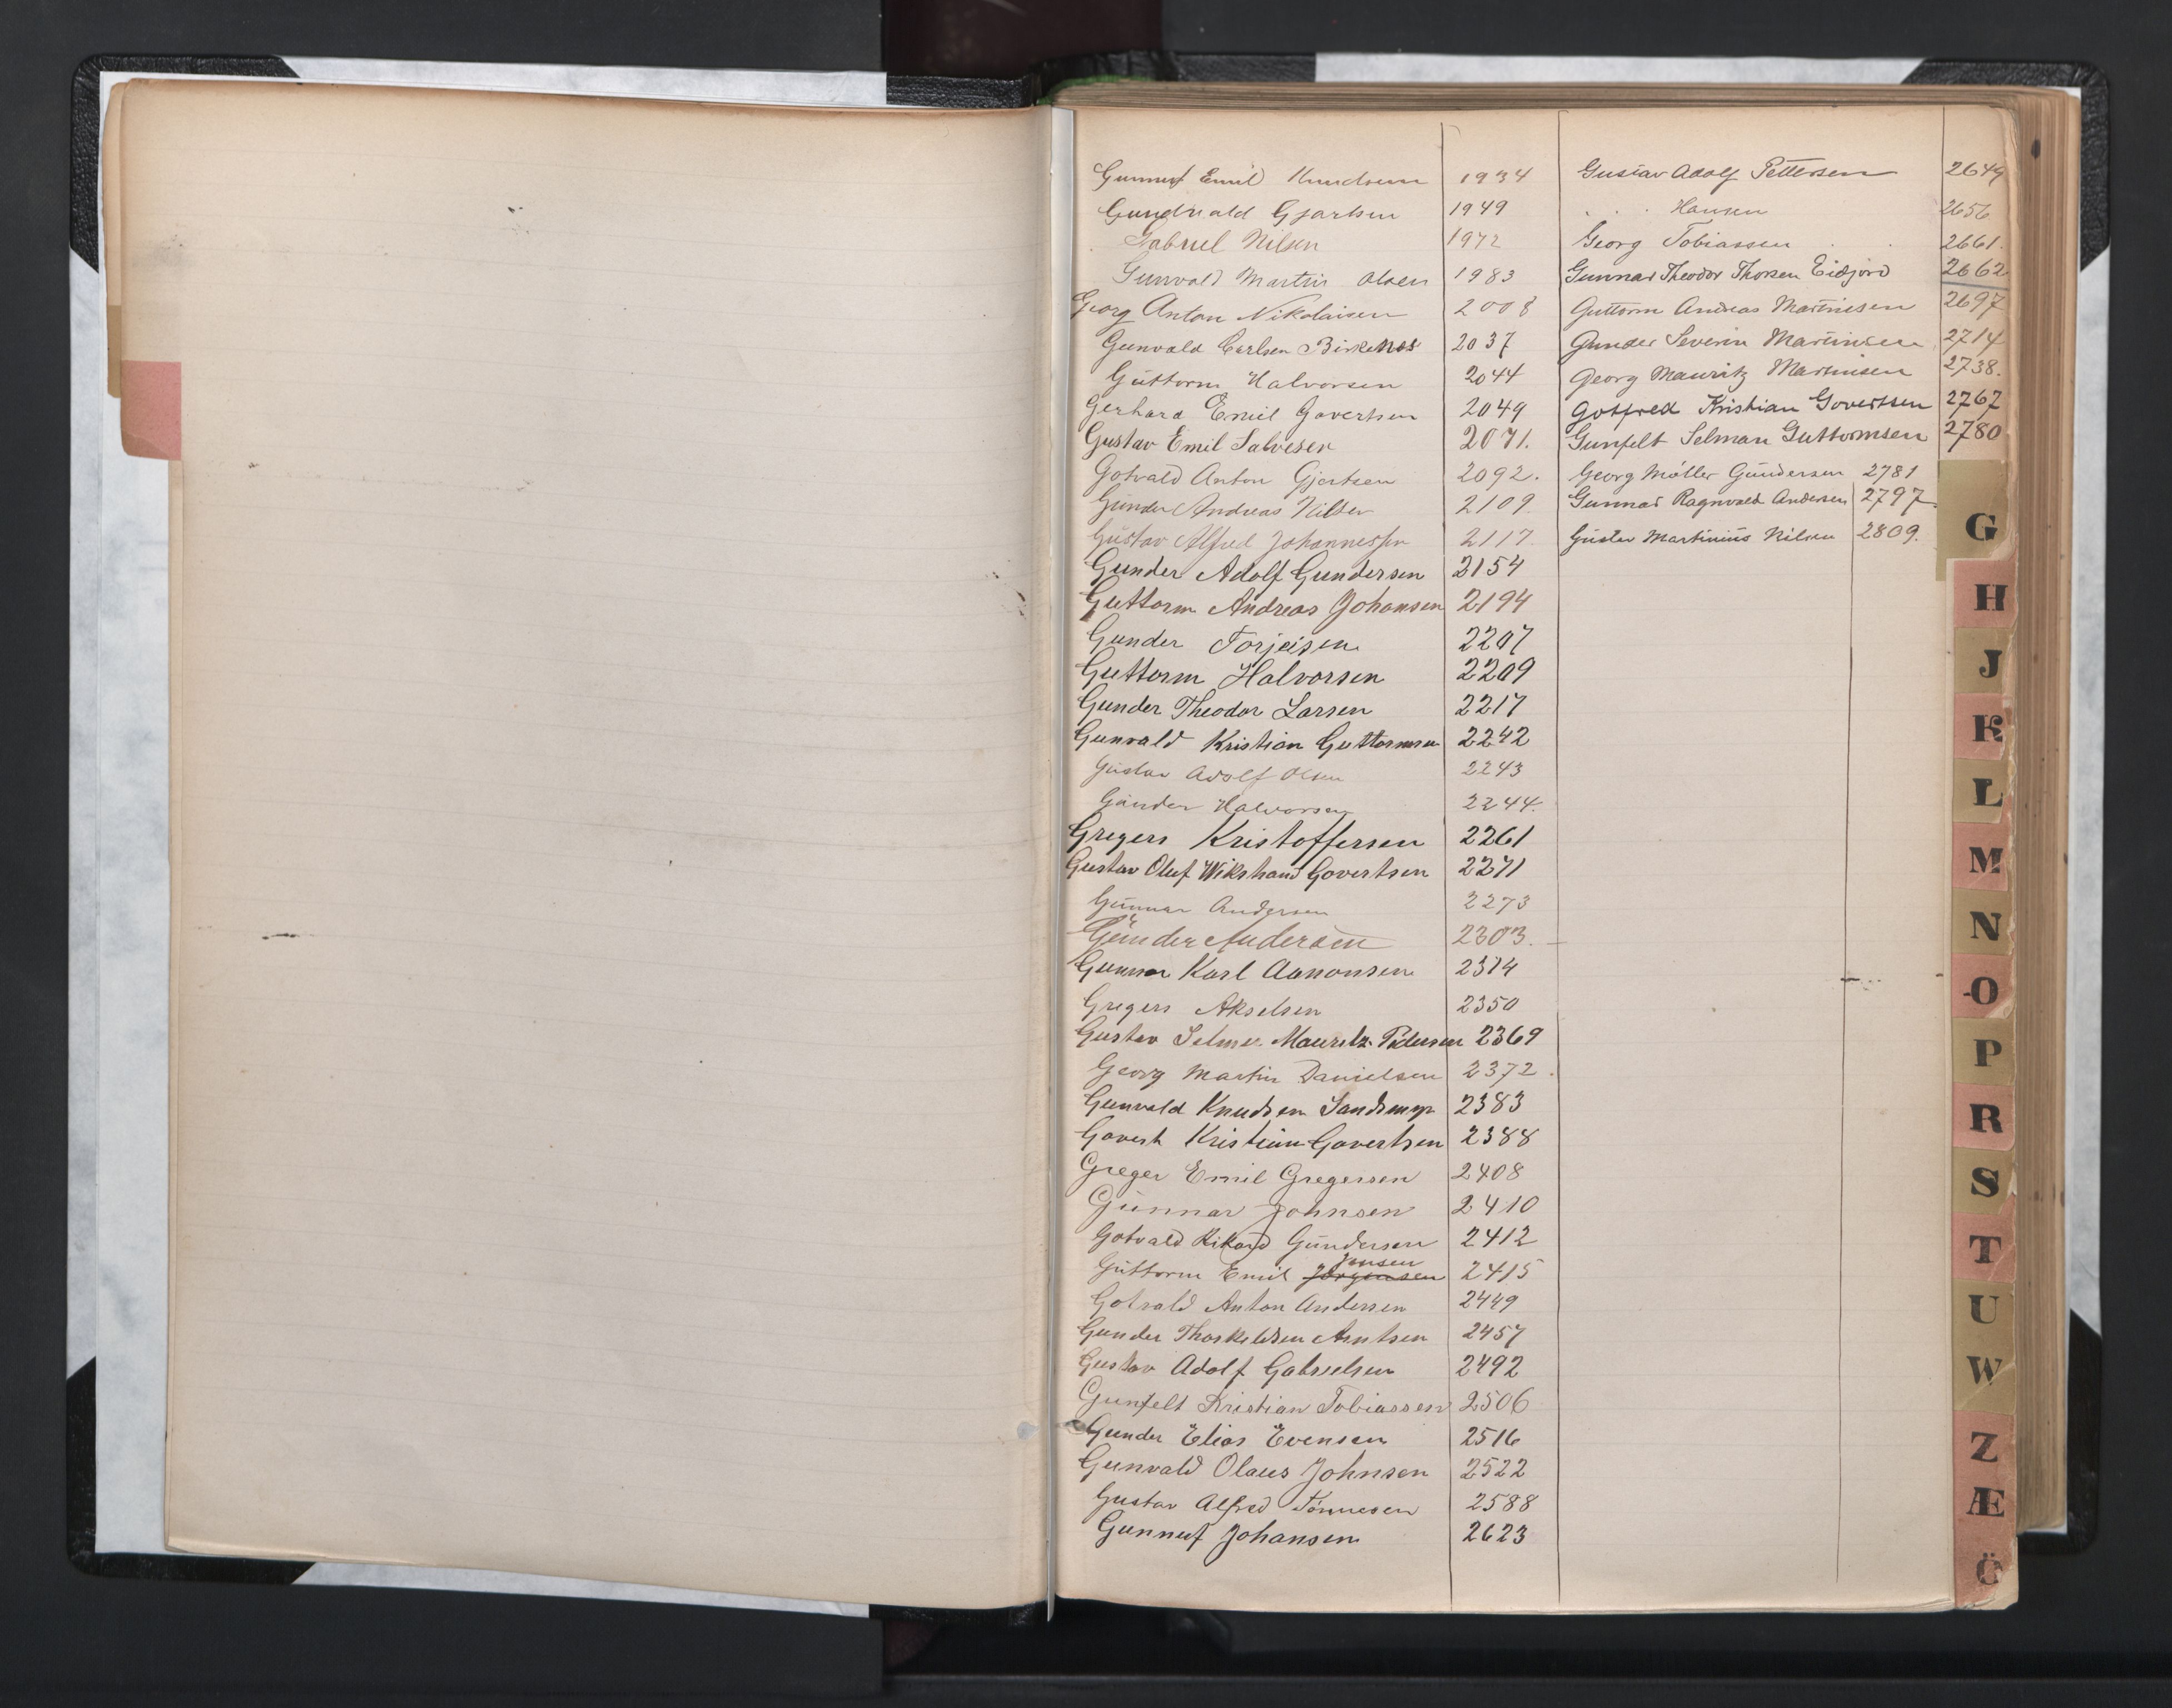 Gunnuf Emil Knudsen 1934
Gundvald Gjertsen 1949
Gabriel Nilsen 1972
Gunvald Martin Olsen 1983
Georg Anton Nikolaisen 2008
Gunvald Carlsen Birkenes 2037
Guttorm Halvorsen 2044
Gerhard Emil Govertsen 2049
Gustav Emil Salvesen 2071.
Gotvald Anton Gjertsen 2092.
Gunder Andreas Nilsen 2109.
Gustav Alfred Johannessen 2117.
Gunder Adolf Gundersen 2154
Guttorm Andreas Johansen 2194
Gunder Torjeisen 2207
Guttorm Halvorsen 2209
Gunder Theodor Larsen 2217
Gunvald Kristian Guttormsen 2242
Gustav Adolf Olsen 2243
Gunder Halvorsen 2244.
Gregers Kristoffersen 2261
Gustav Oluf Wikstrand Govertsen 2271
Gunnar Andersen 2273
Gunder Andersen 2303.
Gunnar Karl Aanonsen 2314
Gregers Akselsen 2350
Gustav Selmer Mauritz Pedersen 2369
Georg Martin Danielsen 2372.
Gunvald Knudsen Sandsmyr 2383
Govert Kristian Govertsen 2388
Greger Emil Gregersen 2408
Gunnar Johnsen 2410
Gotvald Rikard Gundersen 2412
Jensen
Guttorm Emil Jørgensen 2415
Gotvald Anton Andersen 2449
Gunder Thorkeldsen Arntsen 2457
Gustav Adolf Gabrielsen 2492
Gunfelt Kristian Tobiassen 2506
Gunder Elias Evensen 2516
Gunvald Olaus Johnsen 2522
Gustav Alfred Tønnesen 2588
Gunnuf Johansen 2623
Gustav Adolf Pettersen 2649
. . . Hansen 2656
Georg Tobiassen 2661.
Gunnar Theodor Thorsen Eidjord 2662
Guttorm Andreas Martinisen 2697
Gunder Severin Martinsen 2714
Georg Mauritz Martinisen 2738.
Gotfred Kristian Govertsen 2767
Gunfelt Selman Guttormsen 2780
Georg Møller Gundersen 2781
Gunnar Ragnvald Andersen 2797
Gustav Martinius Nilsen 2809.
G
H
J
K
L
M
N
O
P
R
S
T
U
W
Z
Æ
Ö